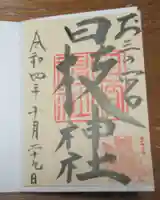 お三の宮
日枝神社
令和四年十月二十九日